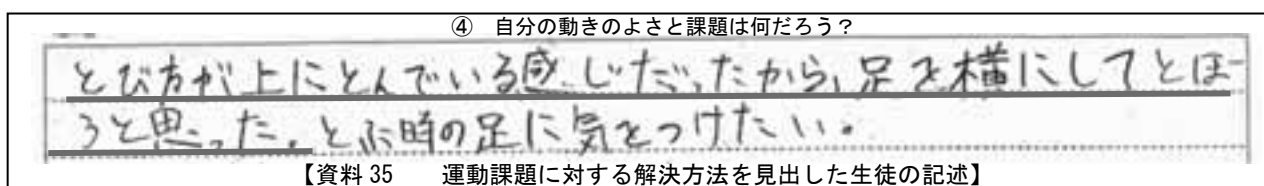 ④ 自分の動きのよさと課題は何だろう？
とび方が上にとんでいる感じだったから、足を横にしてとぼ
うと思った。とぶ時の足に気をつけたい。
【資料 35 運動課題に対する解決方法を見出した生徒の記述】